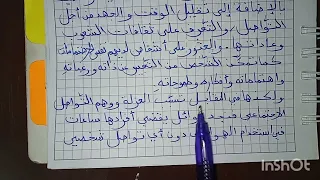 الإضافة إلى تقليل الوقت والجهد من أجل
التواصل، والتعرف على ثقافات الشعوب
وعاداتها، والعثور على أشخاص لديهم نفس الاهتمامات
كما يمكن الشخص من التعبير عن ذاته ورغباته
واهتماماته وأفكاره وطموحاته.
ولكنها في المقابل تسبب العزلة ووهم التواصل
الاجتماعي فنجد عوائل يقضي أفرادها ساعات
في استخدام الهواتف دون أي تواصل شخصي
InShOt